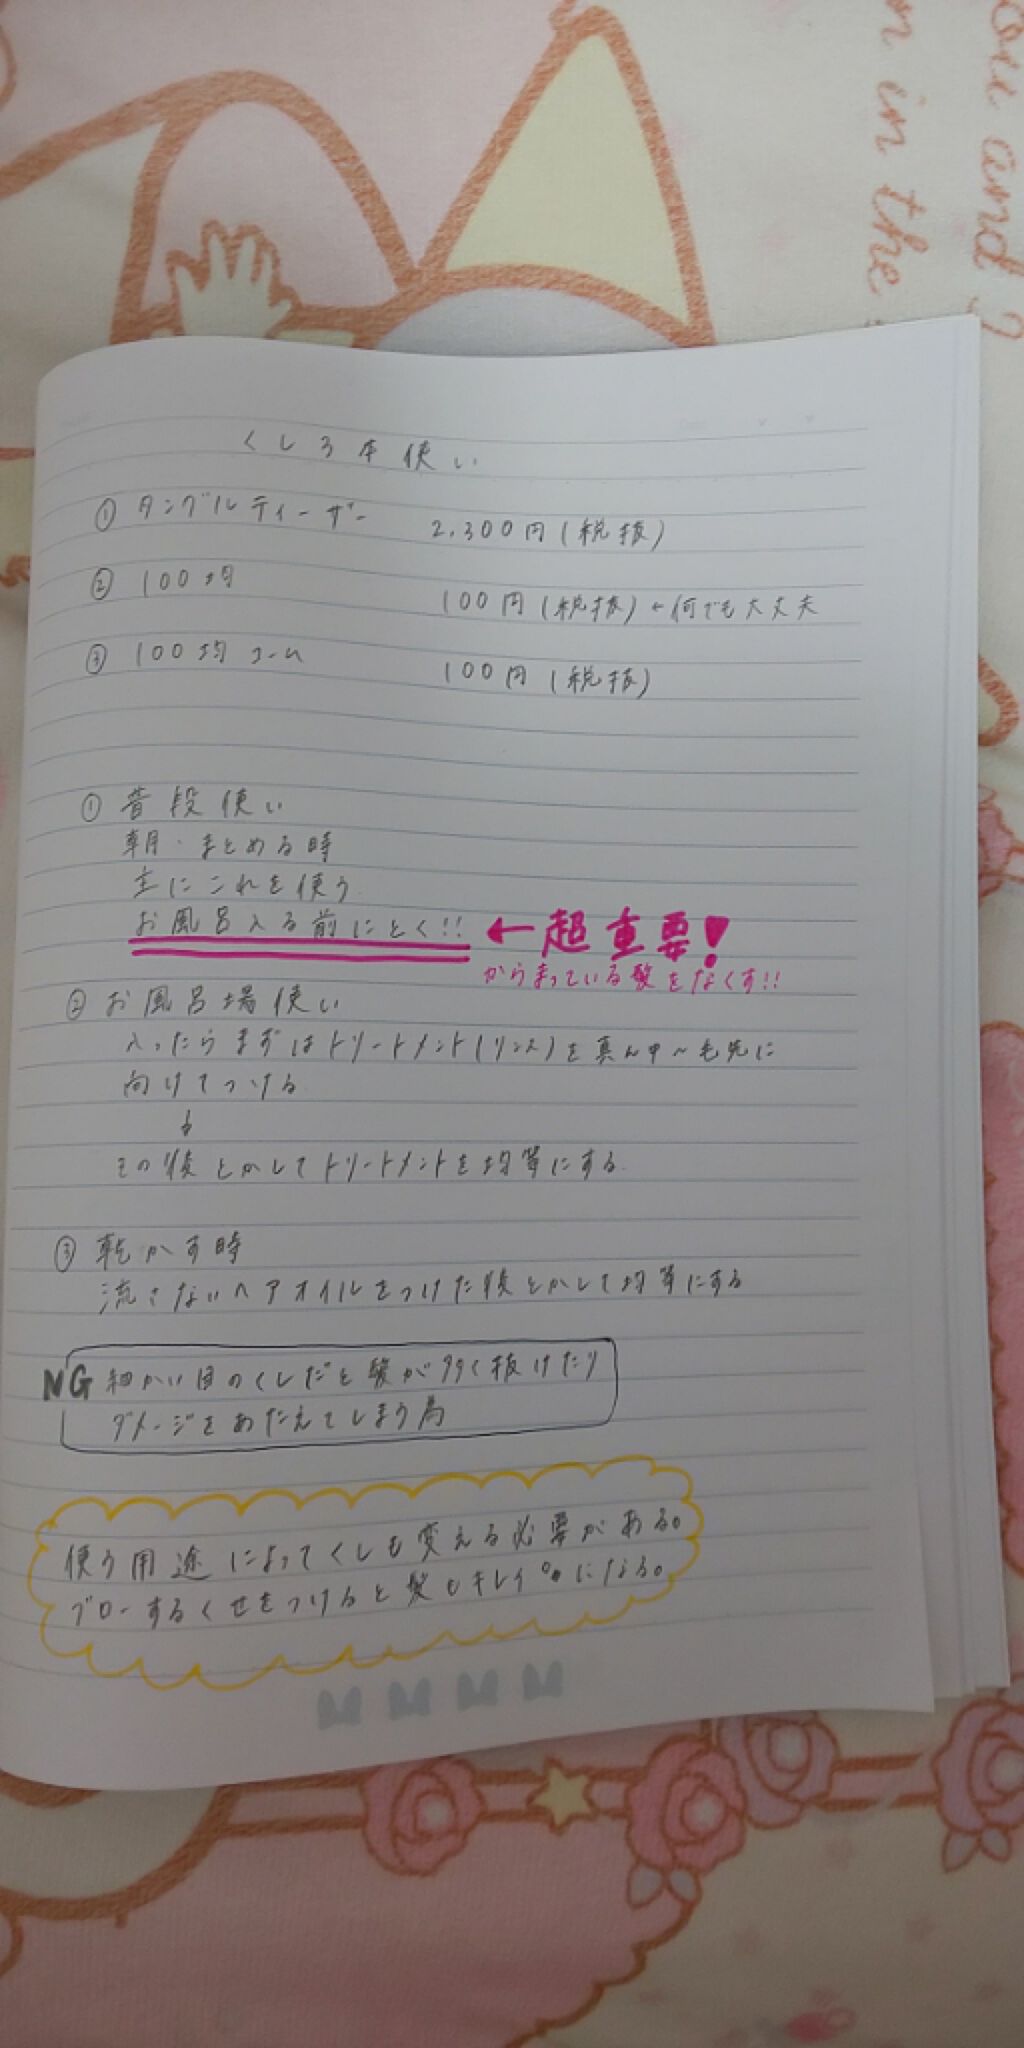 くし3本使い
① タングルティーザー 2,300円(税抜)
② 100均 100円(税抜)←何でも大丈夫
③ 100均コーム 100円(税抜)
① 普段使い
朝・まとめる時
主にこれを使う
お風呂入る前にとく!! ←超重要!
からまっている髪をなくす!!
② お風呂場使い
入ったらまずはトリートメント(リンス)を真ん中〜毛先に
向けてつける
↓
その後とかしてトリートメントを均等にする
③ 乾かす時
流さないヘアオイルをつけた後とかして均等にする
NG 細かい目のくしだと髪が多く抜けたり
ダメージをあたえてしまう為
使う用途によってくしも変える必要がある。
ブローするくせをつけると髪もキレイになる。
you and
m in the